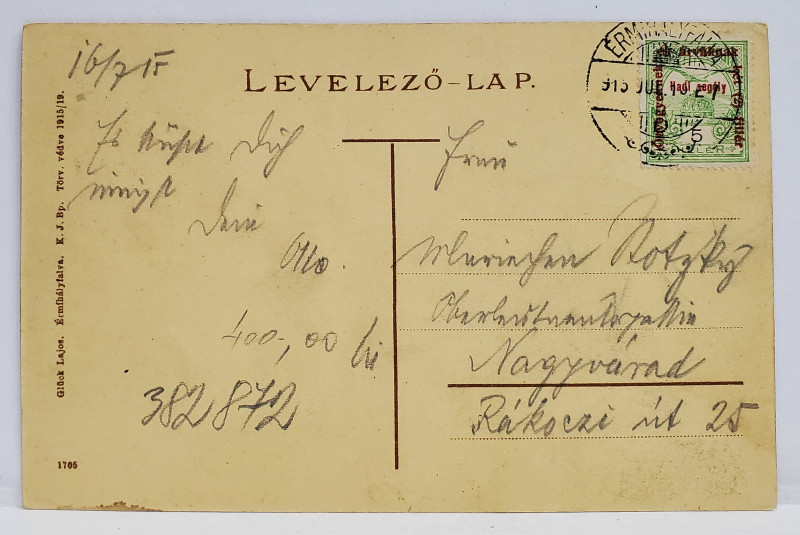 16/7 15
LEVELEZŐ-LAP.
Es küsst Dich
innigst
Dein
Otto.
400,00 lei
382872
Frau
Mariechen Rotzky
Oberleutnantsgattin
Nagyvárad
Rákoczi út 25
ÉRMIHÁLYFALVA
915 JUL
Hadi segély
és árváknak
két (2) fillér
Glück Lajos. Érmihályfalva. K. J. Bp. Törv. védve 1915/19.
1705